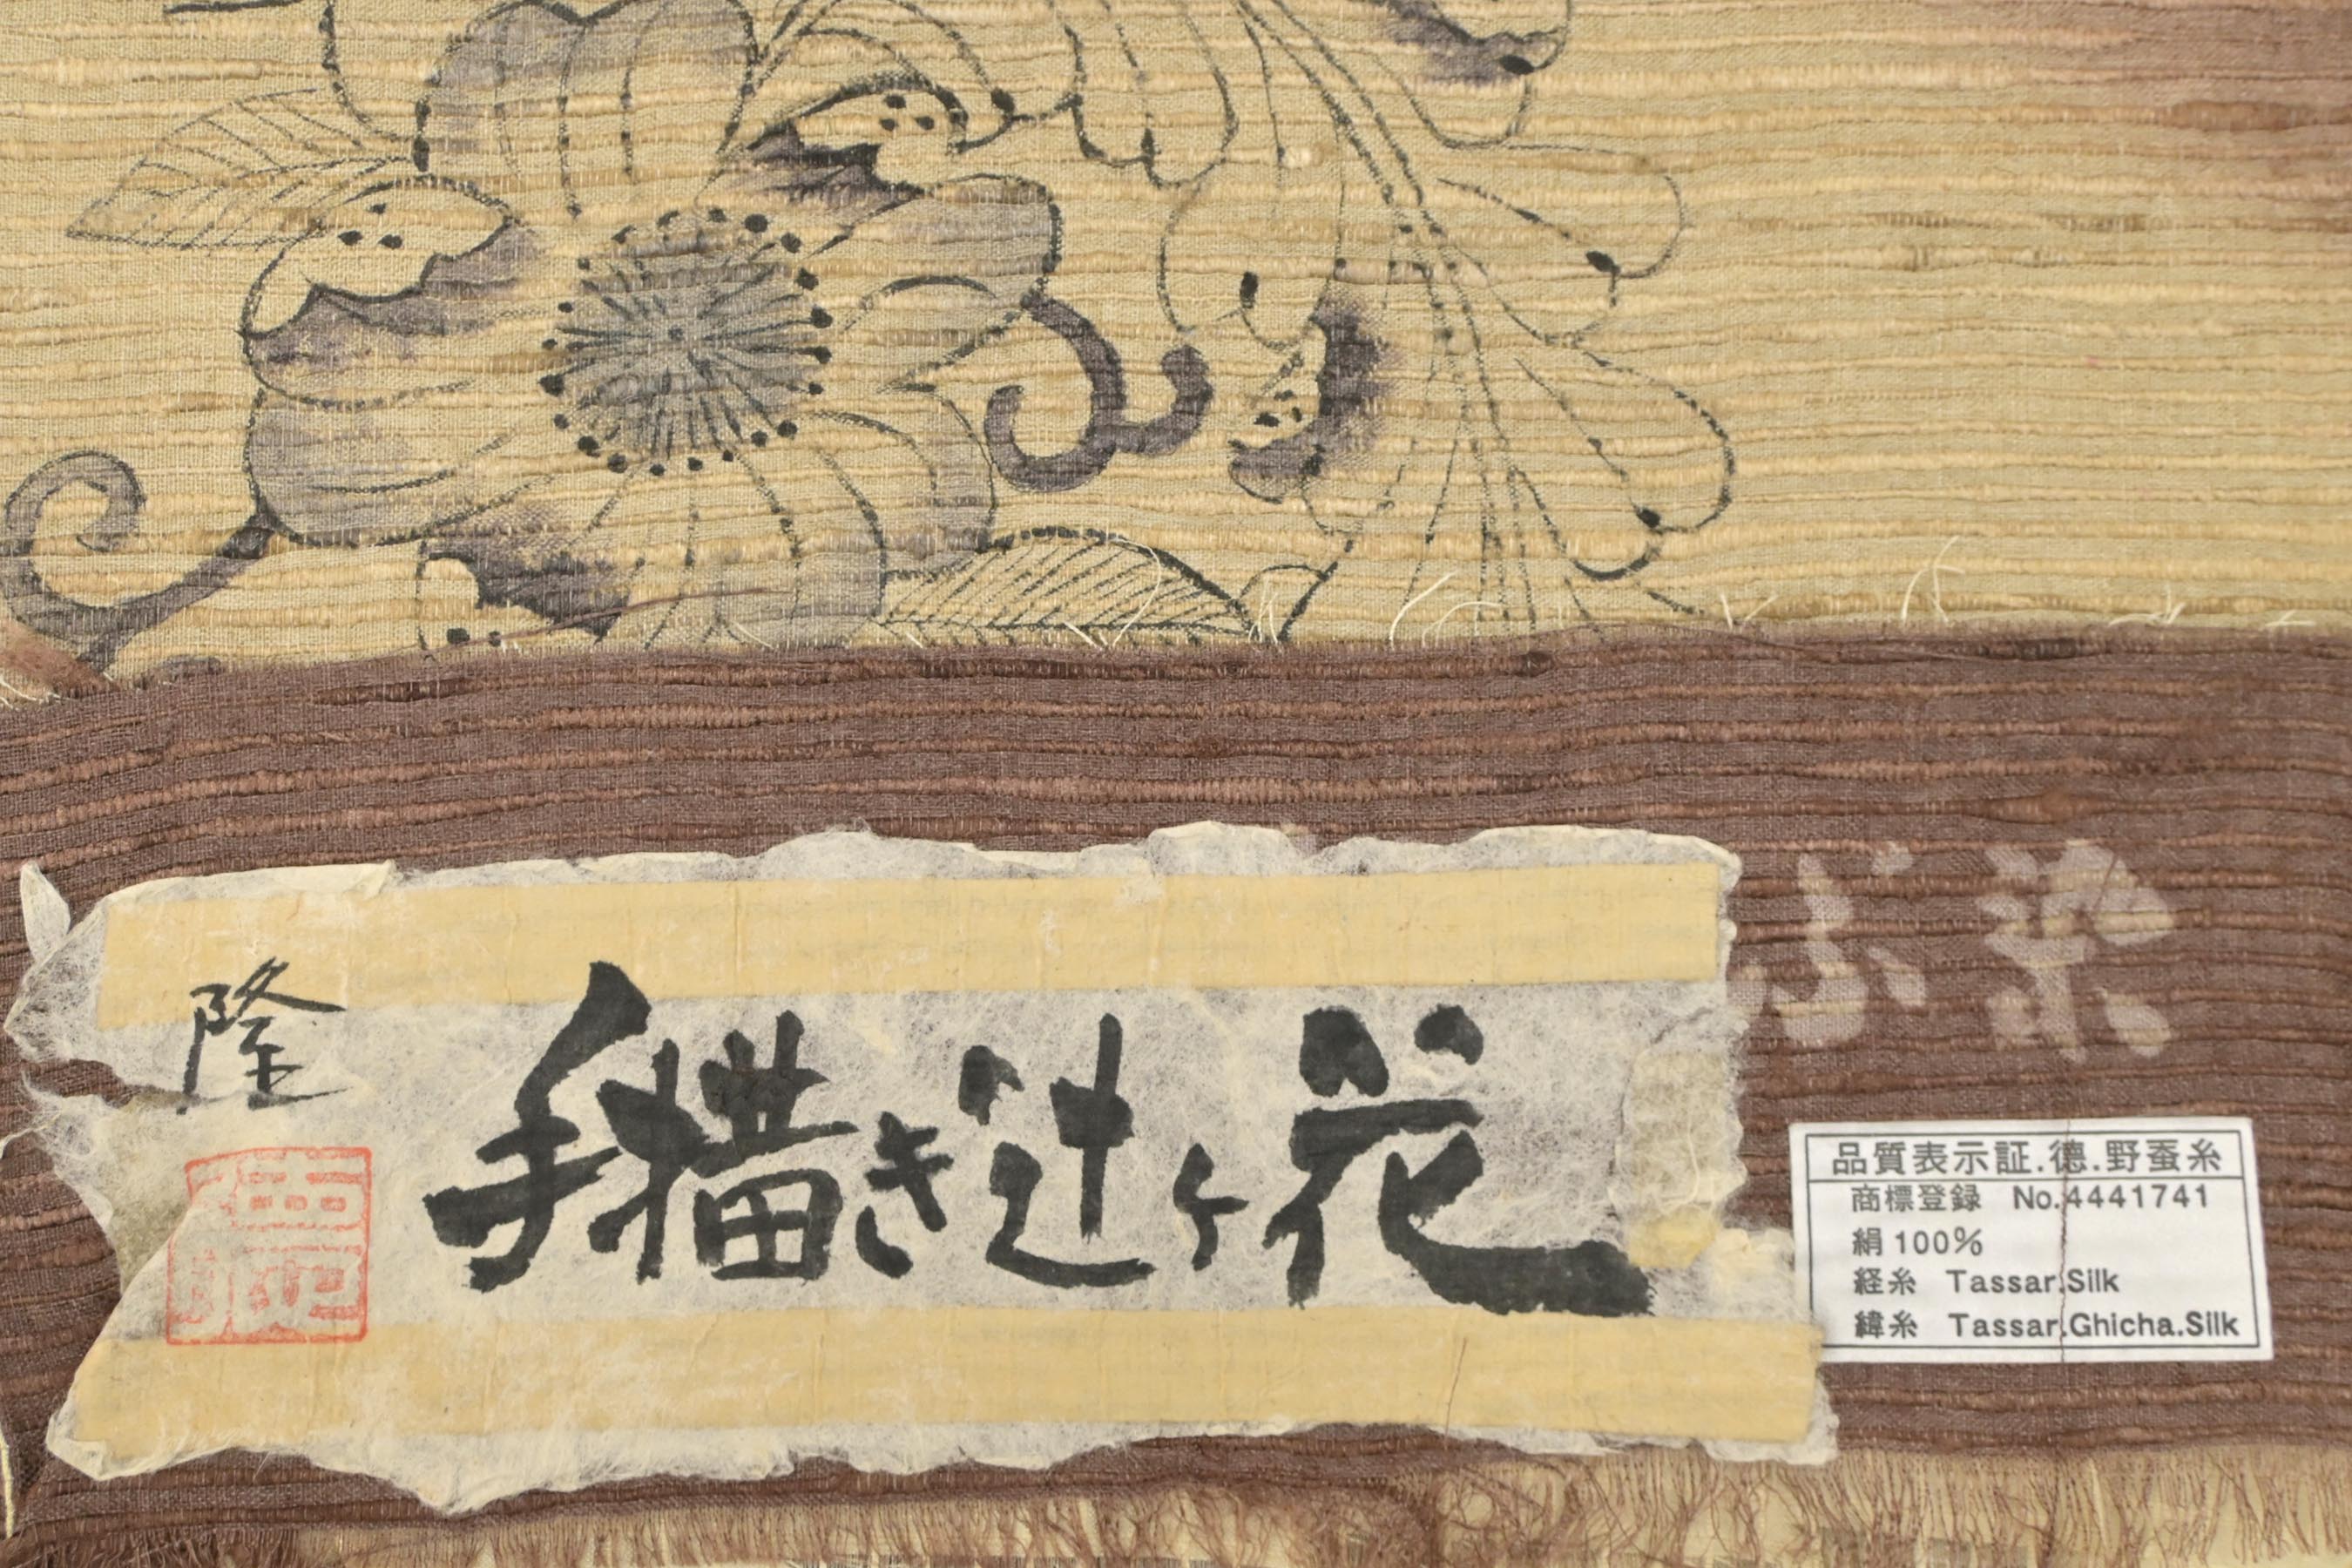 隆
手描き辻ヶ花
染
品質表示証.徳.野蚕糸
商標登録 No.4441741
絹100%
経糸 Tassar.Silk
緯糸 Tassar.Ghicha.Silk